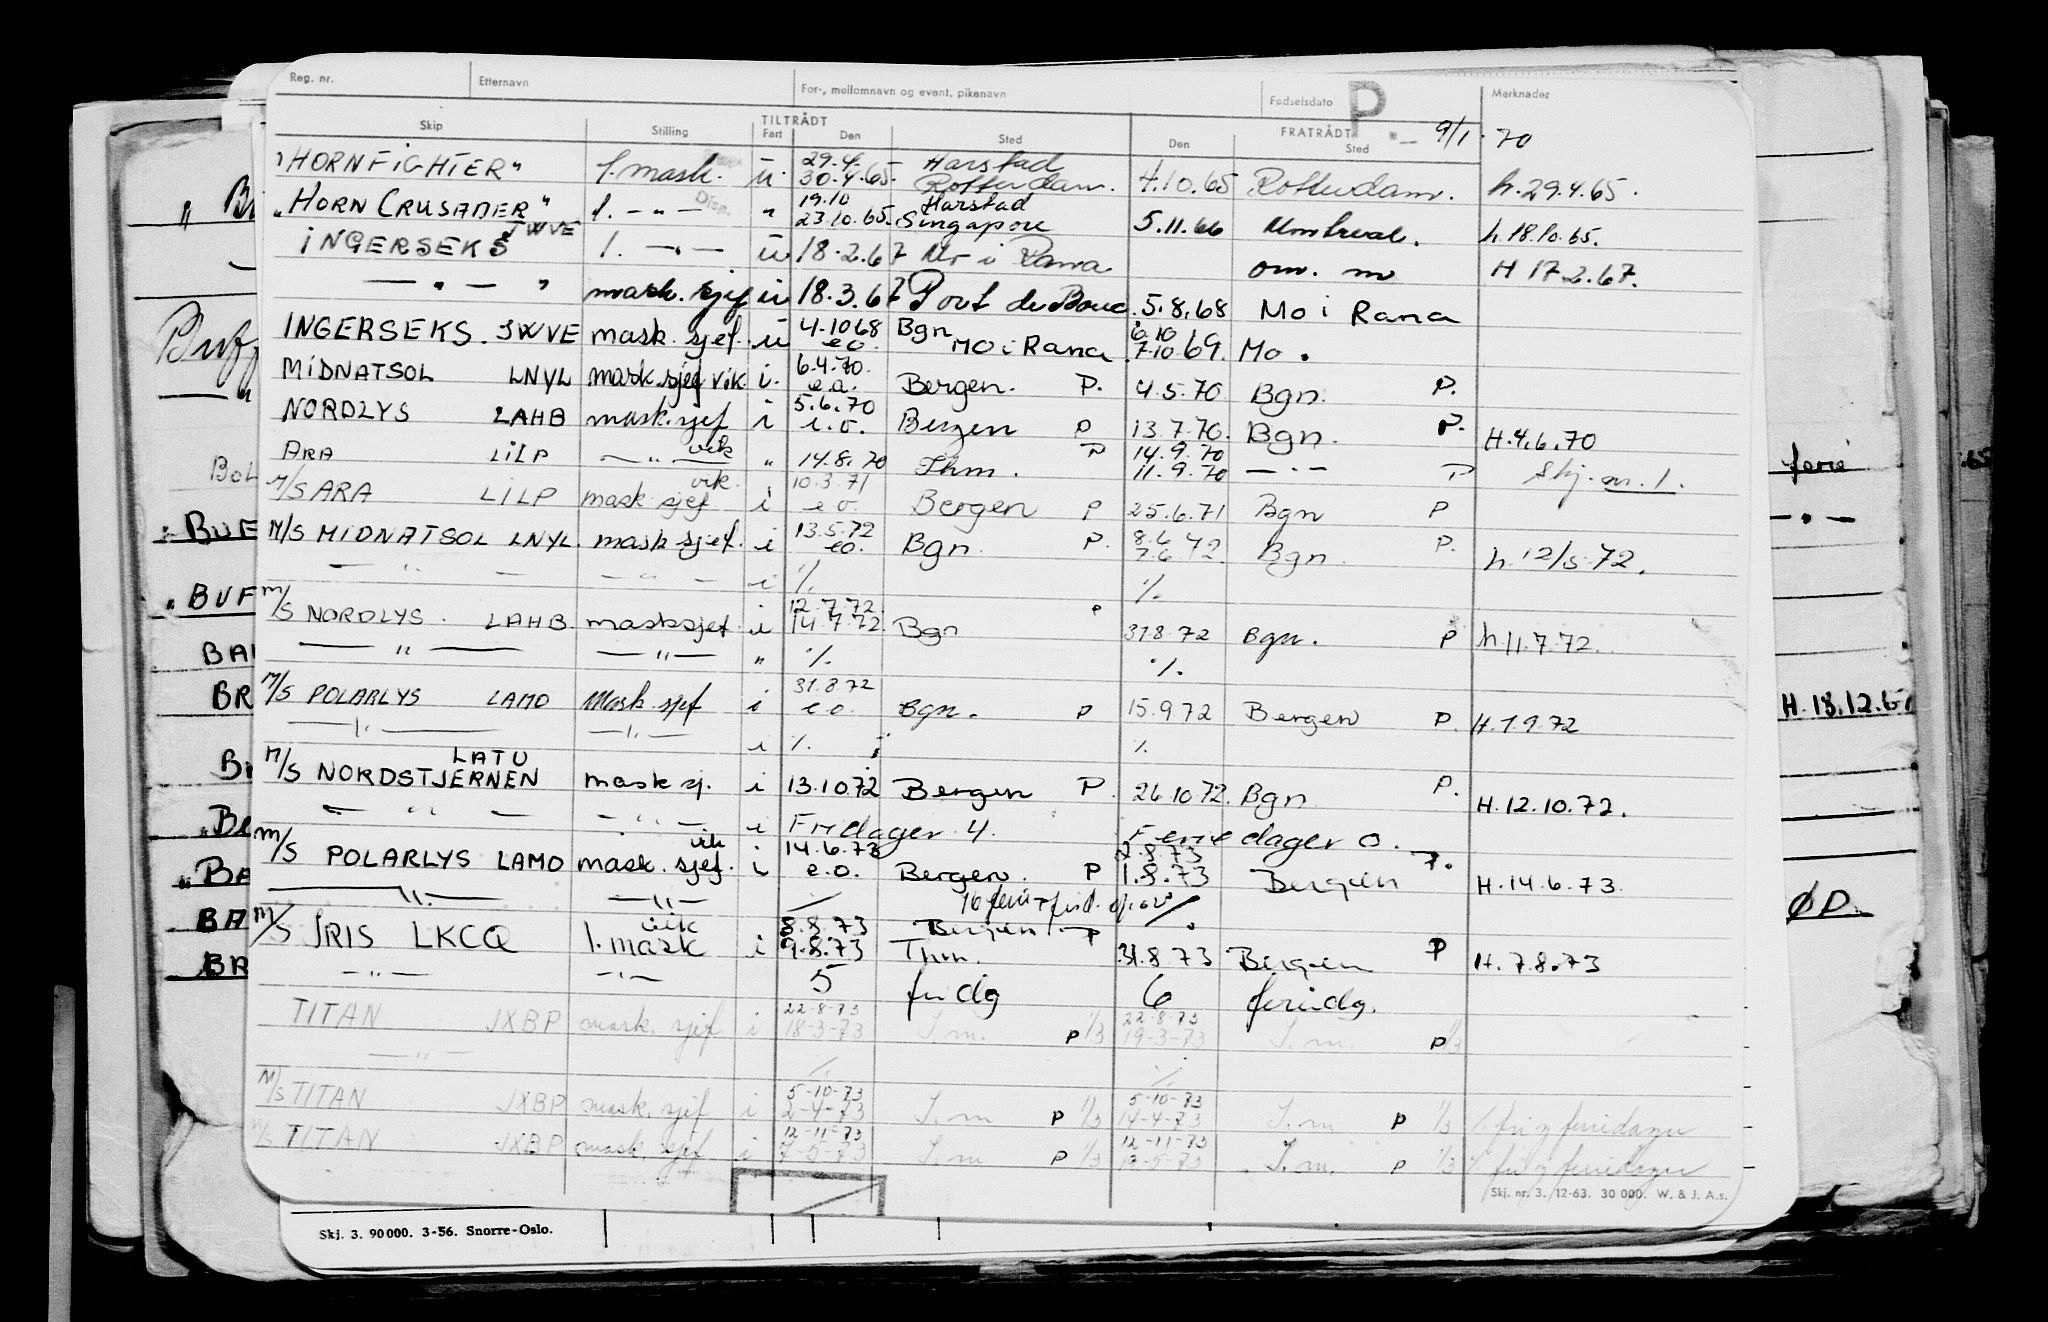 Reg. nr. Etternavn For-, mellomnavn og event. pikenavn Fødselsdato P Merknader
Skip Stilling TILTRÅDT Fart Den Sted FRATRÅDT Den Sted 9/1 70
"HORNFIGHTER" 1. mask. u 29.4. 30.4.65. Harstad Rotterdam. 4.10.65 Rotterdam. h.29.4.65.
"HORN CRUSADER" 1. — " — Disp. " 19.10 23.10.65. Harstad Singapore 5.11.66 Montreal. h.18.10.65.
INGERSEKS JWVE 1. — " — u 18.2.67 Mo i Rana om. m H 17.2.67.
— " — " mask. sjef u 18.3.67 Port de Bouc. 5.8.68 Mo i Rana
INGERSEKS. JWVE mask. sjef. u 4.10 68 e.o. Bgn Mo i Rana 6.10 7.10 69. Mo.
MIDNATSOL LNYL mask. sjef vik i. 6.4.70. e.o. Bergen. P. 4.5.70 Bgn. P.
NORDLYS LAHB mask. sjef i 5.6.70 e.o. Bergen P 13.7.70. Bgn. P. H.4.6.70
ARA LILP — " — vik " 14.8.70 Thm. P 14.9.70 11.9.70 — " — P Skj. nr. 1.
M/S ARA LILP mask sjef vik. i 10.3.71 e.o. Bergen P 25.6.71 Bgn P
M/S MIDNATSOL LNYL. mask sjef. i 13.5.72 e.o. Bgn. P. 8.6 7.6 72. Bgn. P. h. 12/5-72.
— " — — " — i %. %.
M/S NORDLYS. LAHB masksjef. i 12.7.72. 14.7.72 Bgn P 31.8.72 Bgn. P h.11.7.72.
— " — — " — " %. %.
M/S POLARLYS LAMO Mask. sjef i 31.8.72 e.o. Bgn. P 15.9 72 Bergen P. H.1.9.72
— " — — " — i %. %.
M/S NORDSTJERNEN LATU mask sj. i 13.10 72 Bergen P. 26.10.72. Bgn P. H.12.10.72.
— " — — " — i Fridager 4. Feriedager 0.
M/S POLARLYS LAMO mask. sjef. vik i 14.6.73 e.o. Bergen. P 2.8.73 1.8.73 Bergen P. H.14.6.73.
— " — — " — %
M/S IRIS LKCQ 1. mask vik i 8.8.73 9.8.73 Bergen P Thm. 31.8 73 Bergen P H.7.8.73
— " — — " — 5 fridg 6 feridg.
TITAN JXBP mask. sjef i 22-8-73 18-3-73 S.m. P 1/3 22-8-73 19-3-73 S.m. P 1/3
— " — %. %.
M/S TITAN JXBP mask. sjef i 5-10-73 2-4-73 S.m P 1/3 5-10-73 14-4-73 S.m P 1/3 % fri g feriedager
M/S TITAN JXBP mask. sjef i 12-11-73 7-5-73 S.m P 1/3 12-11-73 S.m. P 1/3 % fri g feriedager
Skj. nr. 3. 12-63. 30 000. W. & J. A.s.
Skj. 3. 90 000. 3-56. Snorre-Oslo.
BOL
BUF
BUF
BR
BR
ferie
H. 18.12.6
ØD.